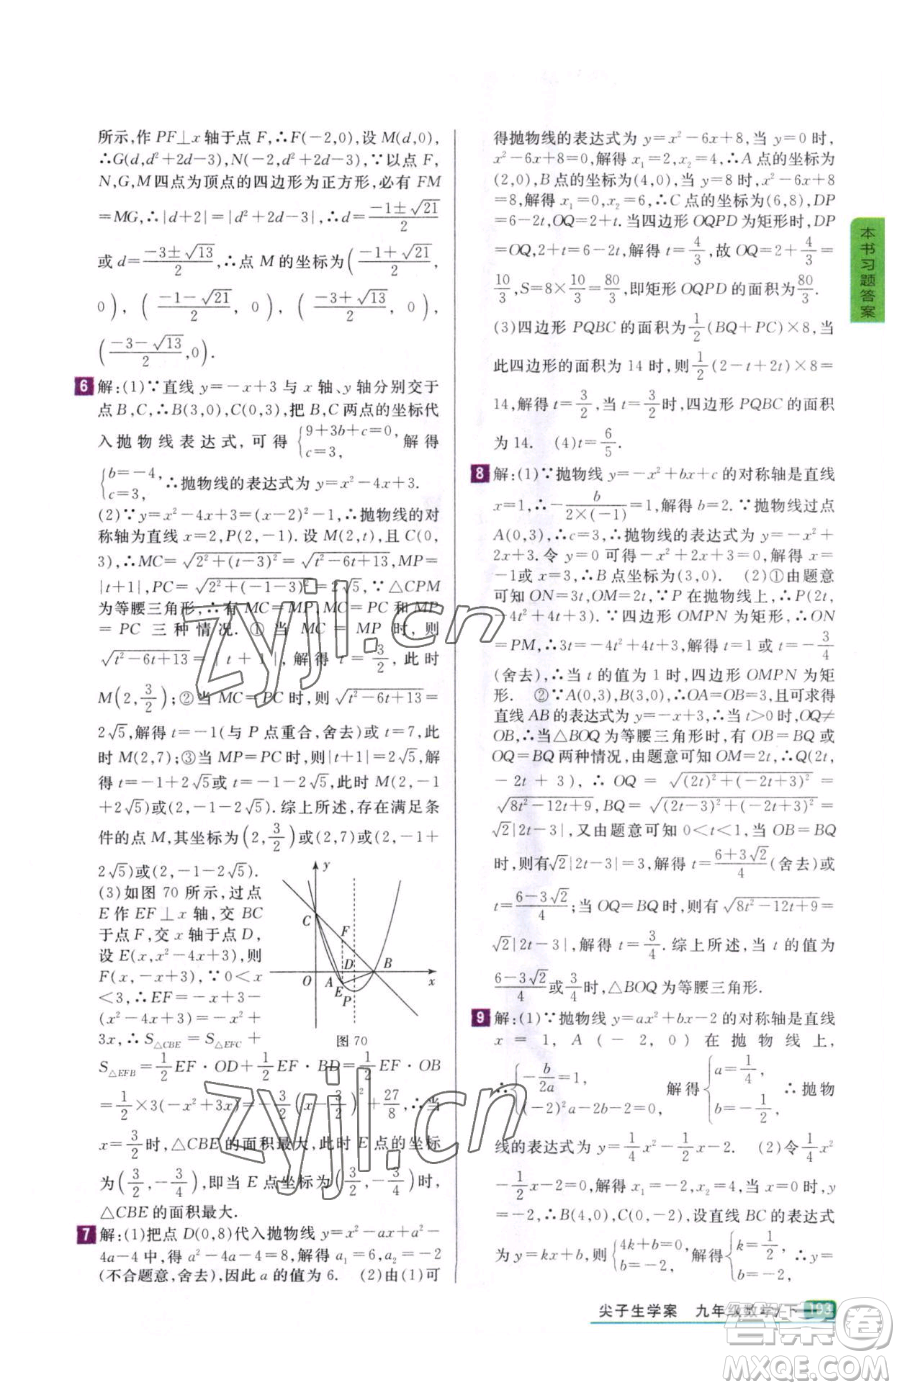 所示,作 PF⊥x 轴于点 F,∴F(-2,0),设 M(d,0),
∴G(d,d²+2d-3),N(-2,d²+2d-3),∵以点 F、
N、G、M 四点为顶点的四边形为正方形,必有 FM
=MG,∴|d+2|=|d²+2d-3|,∴d=(-1±√21)/2
或 d=(-3±√13)/2,∴点 M 的坐标为((-1+√21)/2,
0),((-1-√21)/2,0),((-3+√13)/2,0),
((-3-√13)/2,0).
6 解:(1)∵直线 y=-x+3 与 x 轴、y 轴分别交于
点 B、C,∴B(3,0),C(0,3),把 B、C 两点的坐标代
入抛物线表达式,可得{9+3b+c=0, c=3, 解得
{b=-4, c=3, ∴抛物线的表达式为 y=x²-4x+3.
(2)∵y=x²-4x+3=(x-2)²-1,∴抛物线的对
称轴为直线 x=2,P(2,-1). 设 M(2,t),且 C(0,
3),∴MC=√(2²+(t-3)²)=√(t²-6t+13),MP=
|t+1|,PC=√(2²+(-1-3)²)=2√5,∵△CPM
为等腰三角形,∴有 MC=MP、MC=PC 和 MP
=PC 三种情况. ①当 MC=MP 时,则
√(t²-6t+13)=|t+1|,解得 t=3/2,此时
M(2,3/2);②当 MC=PC 时,则√(t²-6t+13)=
2√5,解得 t=-1(与 P 点重合,舍去)或 t=7,此
时 M(2,7);③当 MP=PC 时,则|t+1|=2√5,解
得 t=-1+2√5或 t=-1-2√5,此时 M(2,-1
+2√5)或(2,-1-2√5). 综上所述,存在满足条
件的点 M,其坐标为(2,3/2)或(2,7)或(2,-1+
2√5)或(2,-1-2√5).
(3)如图 70 所示,过点
E 作 EF⊥x 轴,交 BC
于点 F,交 x 轴于点 D,
设 E(x,x²-4x+3),则
F(x,-x+3),∵0<x
<3,∴EF=-x+3-
(x²-4x+3)=-x²+
3x,∴S△CBE=S△EFC+
S△EFB=1/2EF·OD+1/2EF·BD=1/2EF·OB
=1/2×3(-x²+3x)=-3/2(x-3/2)²+27/8,∴当
x=3/2时,△CBE 的面积最大,此时 E 点的坐标
为(3/2,-3/4),即当 E 点坐标为(3/2,-3/4)时,
△CBE 的面积最大.
y
C
F
D
O
A
B
x
E
P
图 70
7 解:(1)把点 D(0,8)代入抛物线 y=x²-ax+a²-
4a-4 中,得 a²-4a-4=8,解得 a₁=6,a₂=-2
(不合题意,舍去),因此 a 的值为 6. (2)由(1)可
得抛物线的表达式为 y=x²-6x+8,当 y=0 时,
x²-6x+8=0,解得 x₁=2,x₂=4,∴A 点的坐标为
(2,0),B 点的坐标为(4,0),当 y=8 时,x²-6x+
8=8,解得 x₁=0,x₂=6,∴C 点的坐标为(6,8),DP
=6-2t,OQ=2+t,当四边形 OQPD 为矩形时,DP
=OQ,即 2+t=6-2t,解得 t=4/3,故 OQ=2+4/3=
10/3,S=8×10/3=80/3,即矩形 OQPD 的面积为80/3.
(3)四边形 PQBC 的面积为1/2(BQ+PC)×8,当
此四边形的面积为 14 时,则1/2(2-t+2t)×8=
14,解得 t=3/2,当 t=3/2时,四边形 PQBC 的面积
为 14. (4)t=6/5.
8 解:(1)∵抛物线 y=-x²+bx+c 的对称轴是直线
x=1,∴-b/(2×(-1))=1,解得 b=2. ∵抛物线过点
A(0,3),∴c=3,∴抛物线的表达式为 y=-x²+
2x+3. 令 y=0 可得-x²+2x+3=0,解得 x=
-1或 x=3,∴B 点坐标为(3,0). (2)①由题意
可知 ON=3t,OM=2t,∵P 在抛物线上,∴P(2t,
-4t²+4t+3). ∵四边形 OMPN 为矩形,∴ON
=PM,∴3t=-4t²+4t+3,解得 t=1 或 t=-3/4
(舍去),∴当 t 的值为 1 时,四边形 OMPN 为矩
形. ②∵A(0,3),B(3,0),∴OA=OB=3,且可求得
直线 AB 的表达式为 y=-x+3,∴当 t>0 时,OQ≠
OB,∴当△BOQ 为等腰三角形时,有 OB=BQ 或
OQ=BQ 两种情况,由题意可知 OM=2t,∴Q(2t,
-2t+3),∴OQ=√((2t)²+(-2t+3)²)=
√(8t²-12t+9),BQ=√((2t-3)²+(-2t+3)²)=
√2|2t-3|,又由题意可知 0<t<1,当 OB=BQ
时,则有√2|2t-3|=3,解得 t=(6+3√2)/4(舍去)或
t=(6-3√2)/4;当 OQ=BQ 时,则有√(8t²-12t+9)=
√2|2t-3|,解得 t=3/4. 综上所述,当 t 的值为
(6-3√2)/4或3/4时,△BOQ 为等腰三角形.
9 解:(1)∵抛物线 y=ax²+bx-2 的对称轴是直线
x=1,A(-2,0)在抛物线上,
∴{-b/2a=1, (-2)²a-2b-2=0, 解得{a=1/4, b=-1/2, ∴抛物
线的表达式为 y=1/4x²-1/2x-2. (2)令1/4x²
-1/2x-2=0,解得 x₁=-2,x₂=4,当 x=0 时,y=
-2,∴B(4,0),C(0,-2),设直线 BC 的表达式
为 y=kx+b,则{4k+b=0, b=-2, 解得{k=1/2, b=-2, ∴y=
本书习题答案
尖子生学案 九年级数学/下 193
zyjl.cn
zyjl.cn
答案圈
MXQE.COM